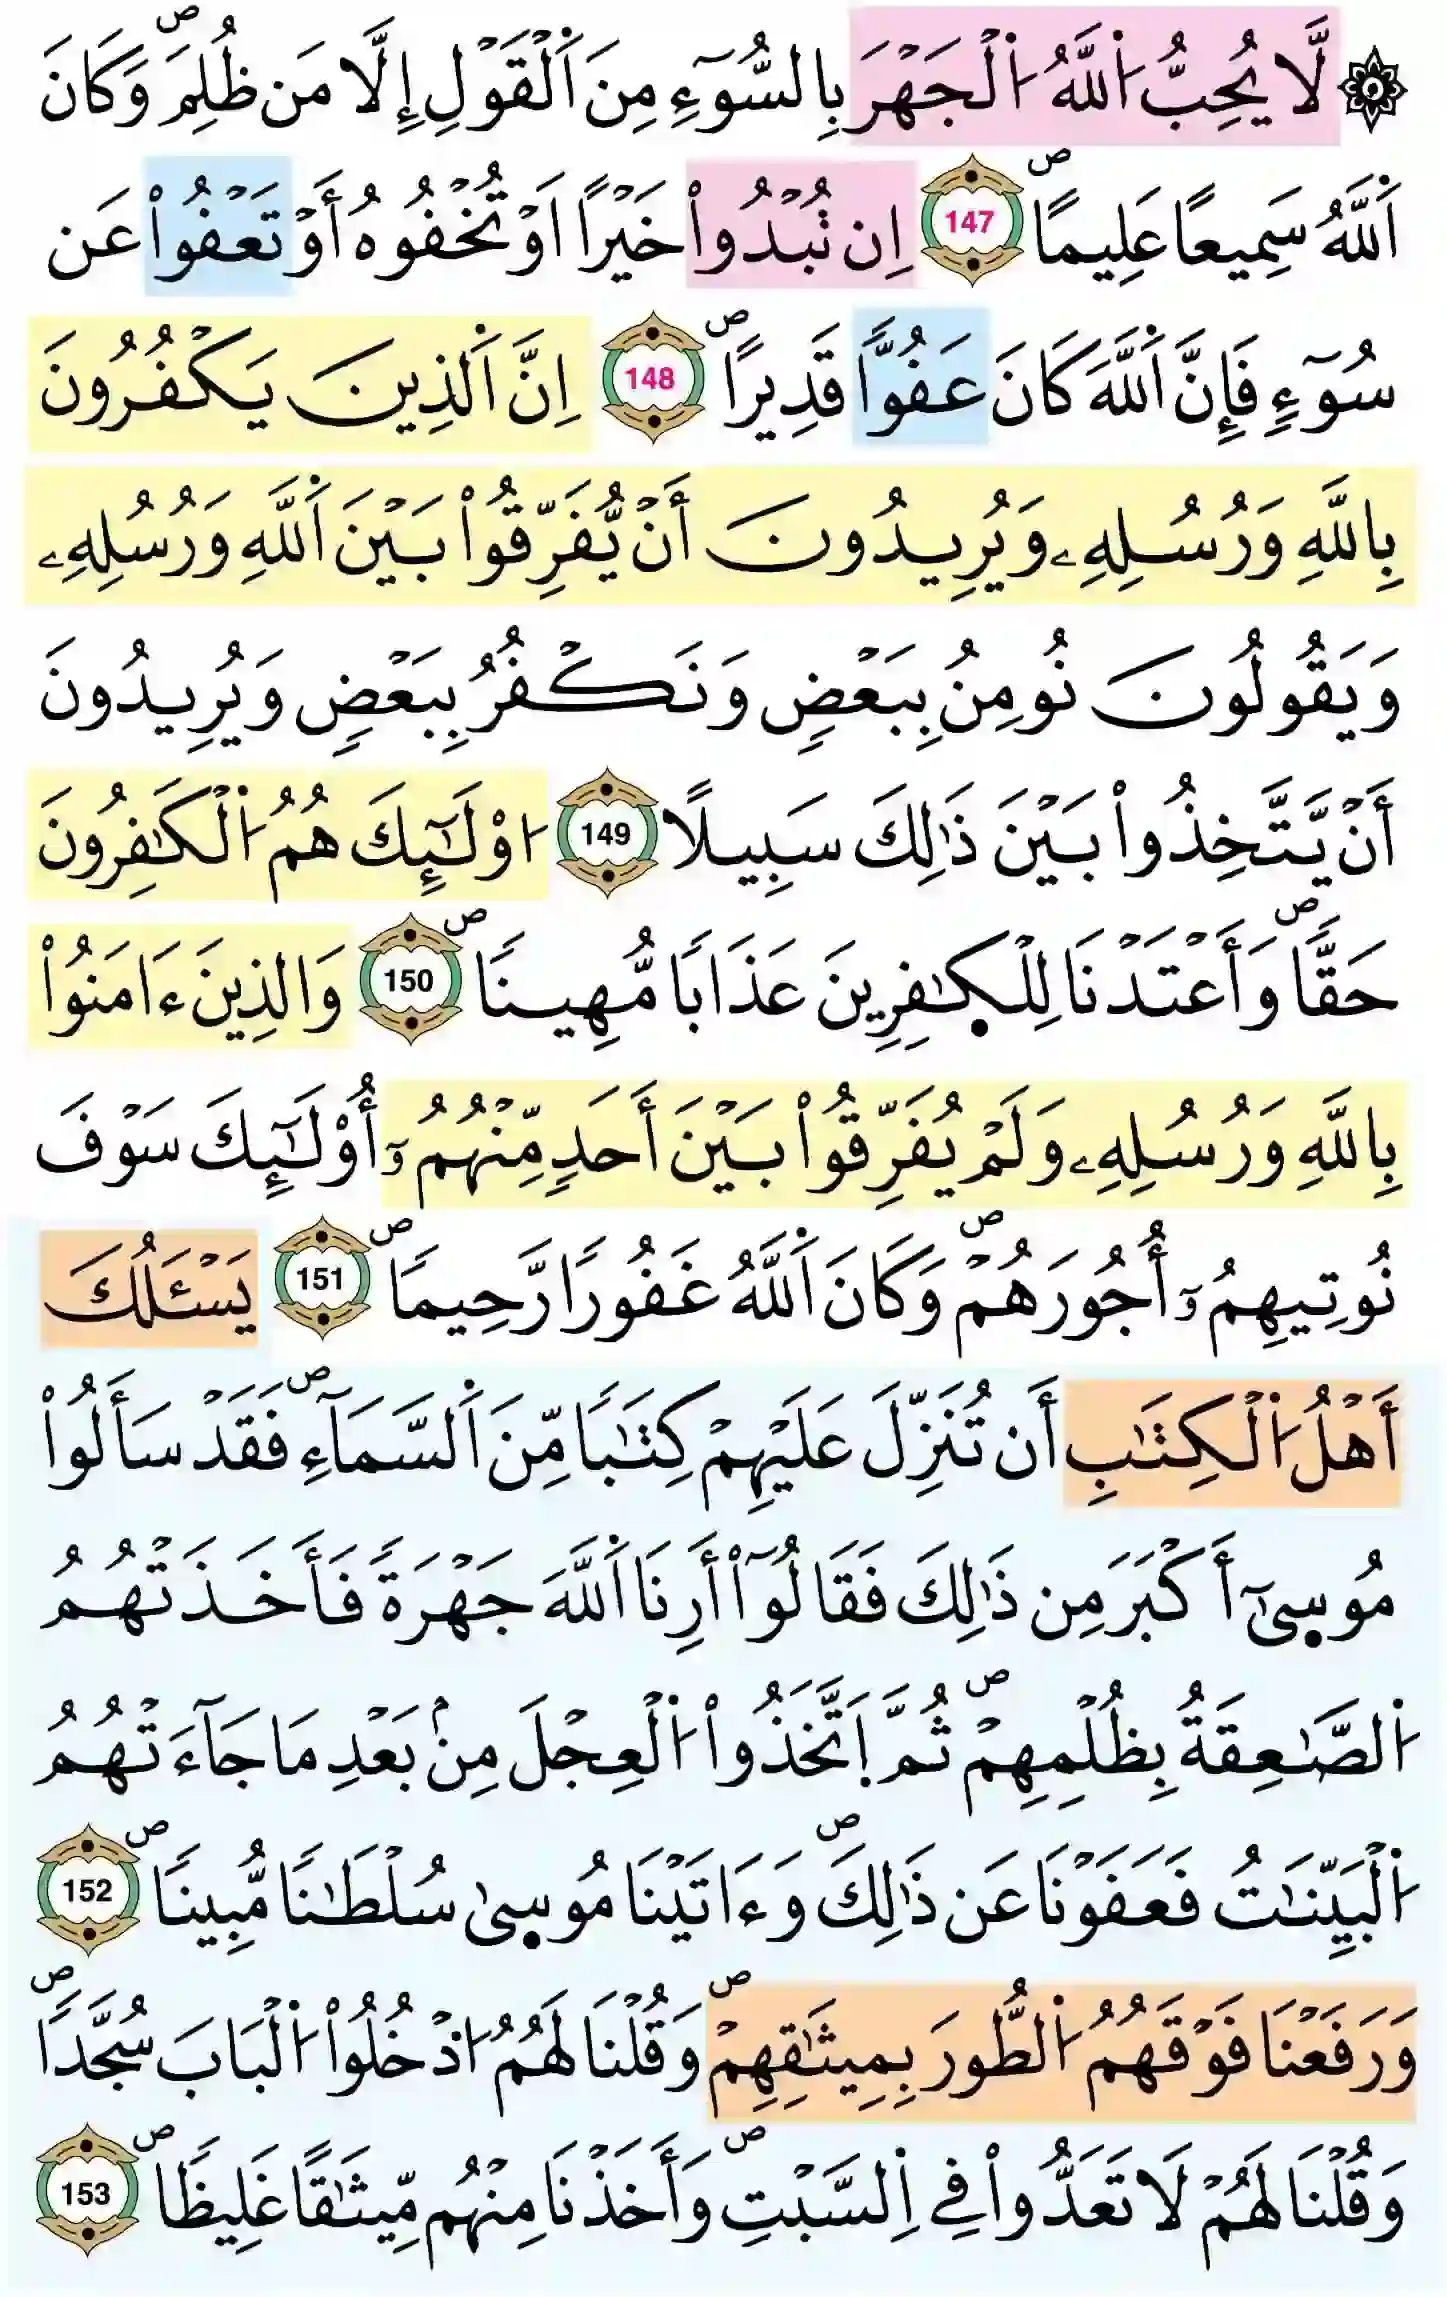 ۞ لَّا يُحِبُّ اُ۬للَّهُ اُ۬لْجَهْرَ بِالسُّوٓءِ مِنَ اَ۬لْقَوْلِ إِلَّا مَن ظُلِمَۖ وَكَانَ
اَ۬للَّهُ سَمِيعًا عَلِيمًاۖ 147 اِن تُبْدُواْ خَيْرًا اَوْ تُخْفُوهُ أَوْ تَعْفُواْ عَن
سُوٓءٍ فَإِنَّ اَ۬للَّهَ كَانَ عَفُوًّا قَدِيرًاۖ 148 اِنَّ اَ۬لذِينَ يَكْفُرُونَ
بِاللَّهِ وَرُسُلِهِۦ وَيُرِيدُونَ أَنْ يُّفَرِّقُواْ بَيْنَ اَ۬للَّهِ وَرُسُلِهِۦ
وَيَقُولُونَ نُومِنُ بِبَعْضٍ وَنَكْفُرُ بِبَعْضٍ وَيُرِيدُونَ
أَنْ يَّتَّخِذُواْ بَيْنَ ذَٰلِكَ سَبِيلًا 149 اُوْلَٰٓئِكَ هُمُ اُ۬لْكَٰفِرُونَ
حَقًّاۖ وَأَعْتَدْنَا لِلْكٰ۪فِرِينَ عَذَابًا مُّهِينًاۖ 150 وَالذِينَ ءَامَنُواْ
بِاللَّهِ وَرُسُلِهِۦ وَلَمْ يُفَرِّقُواْ بَيْنَ أَحَدٍ مِّنْهُمُۥٓ أُوْلَٰٓئِكَ سَوْفَ
نُوتِيهِمُۥٓ أُجُورَهُمْۖ وَكَانَ اَ۬للَّهُ غَفُورًا رَّحِيمًاۖ 151 يَسْـَٔلُكَ
أَهْلُ اُ۬لْكِتَٰبِ أَن تُنَزِّلَ عَلَيْهِمْ كِتَٰبًا مِّنَ اَ۬لسَّمَآءِۖ فَقَدْ سَأَلُواْ
مُوس۪ىٰٓ أَكْبَرَ مِن ذَٰلِكَ فَقَالُوٓاْ أَرِنَا اَ۬للَّهَ جَهْرَةً فَأَخَذَتْهُمُ
اُ۬لصَّٰعِقَةُ بِظُلْمِهِمْۖ ثُمَّ اَ۪تَّخَذُواْ اُ۬لْعِجْلَ مِنۢ بَعْدِ مَا جَآءَتْهُمُ
اُ۬لْبَيِّنَٰتُ فَعَفَوْنَا عَن ذَٰلِكَۖ وَءَاتَيْنَا مُوس۪ىٰ سُلْطَٰنًا مُّبِينًاۖ 152
وَرَفَعْنَا فَوْقَهُمُ اُ۬لطُّورَ بِمِيثَٰقِهِمْۖ وَقُلْنَا لَهُمُ اُ۟دْخُلُواْ اُ۬لْبَابَ سُجَّدًاۖ
وَقُلْنَا لَهُمْ لَا تَعَدُّواْ فِے اِ۬لسَّبْتِۖ وَأَخَذْنَا مِنْهُم مِّيثَٰقًا غَلِيظًاۖ 153